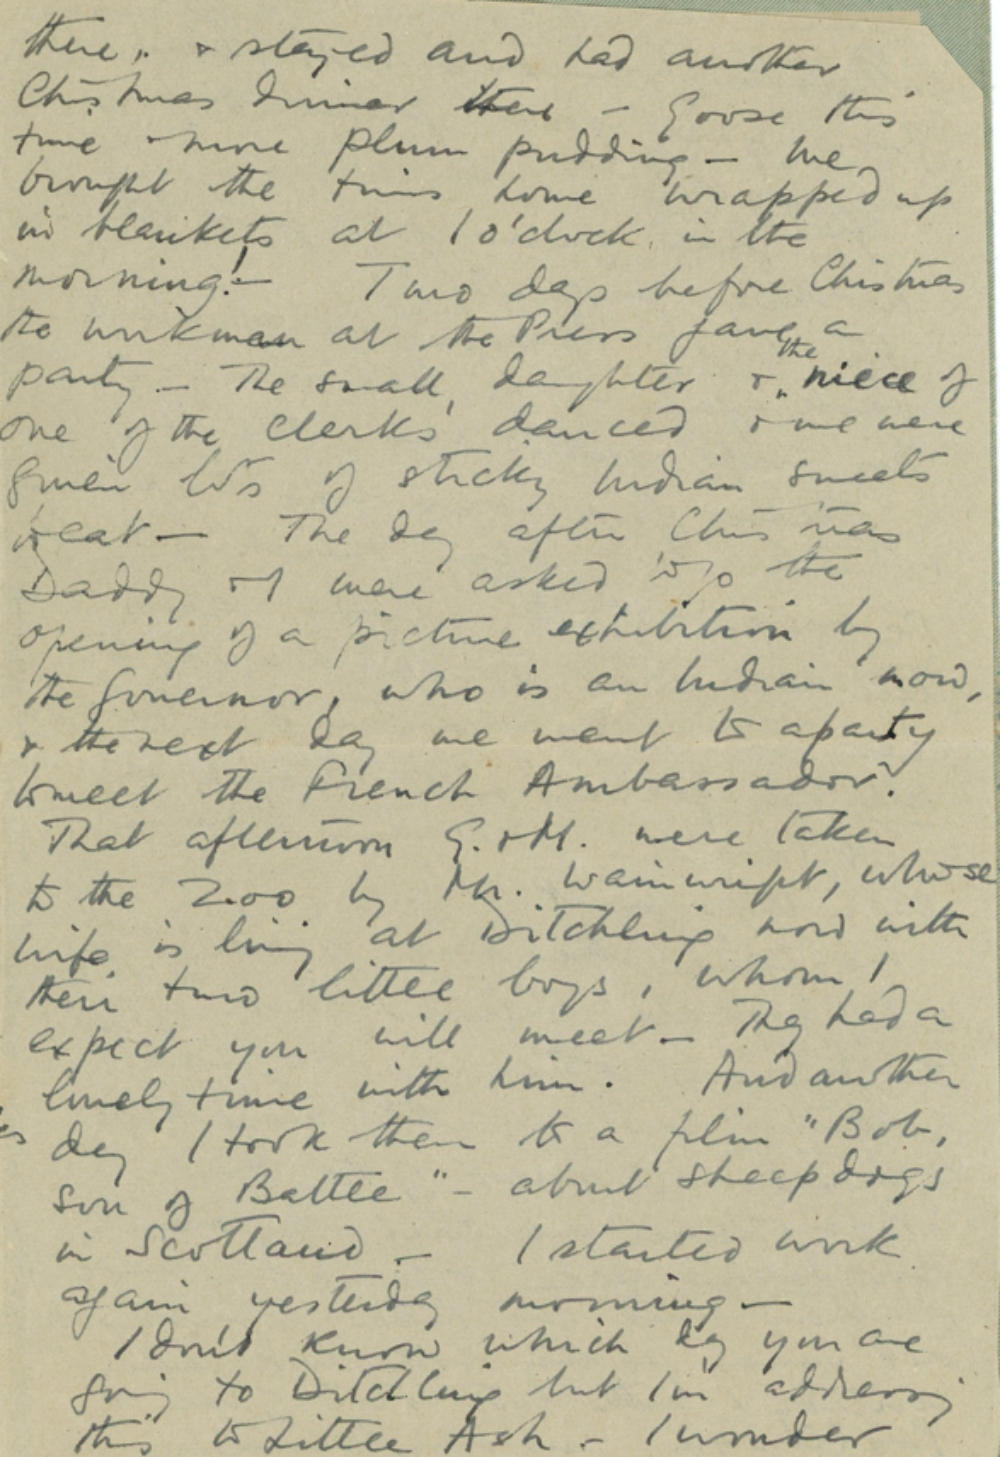 there, & stayed and had another
Christmas dinner there - Goose this
time & more plum pudding - We
brought the twins home wrapped up
in blankets at 1 o'clock in the
morning! - Two days before Christmas
the workmen at the Press gave a
party - The small daughter & the niece of
one of the clerks danced & we were
given lots of sticky Indian sweets
to eat - The day after Christmas
Daddy & I were asked to go to the
opening of a picture exhibition by
the Governor, who is an Indian now,
& the next day we went to a party
to meet the French Ambassador.
That afternoon G. & M. were taken
to the Zoo by Mr. Wainwright, whose
wife is living at Ditchling now with
their two little boys, whom I
expect you will meet - They had a
lovely time with him. And another
day I took them to a film "Bob,
son of Battle" - about sheepdogs
in Scotland - I started work
again yesterday morning -
I don't know which day you are
going to Ditchling but I'm addressing
this to Little Ash - I wonder